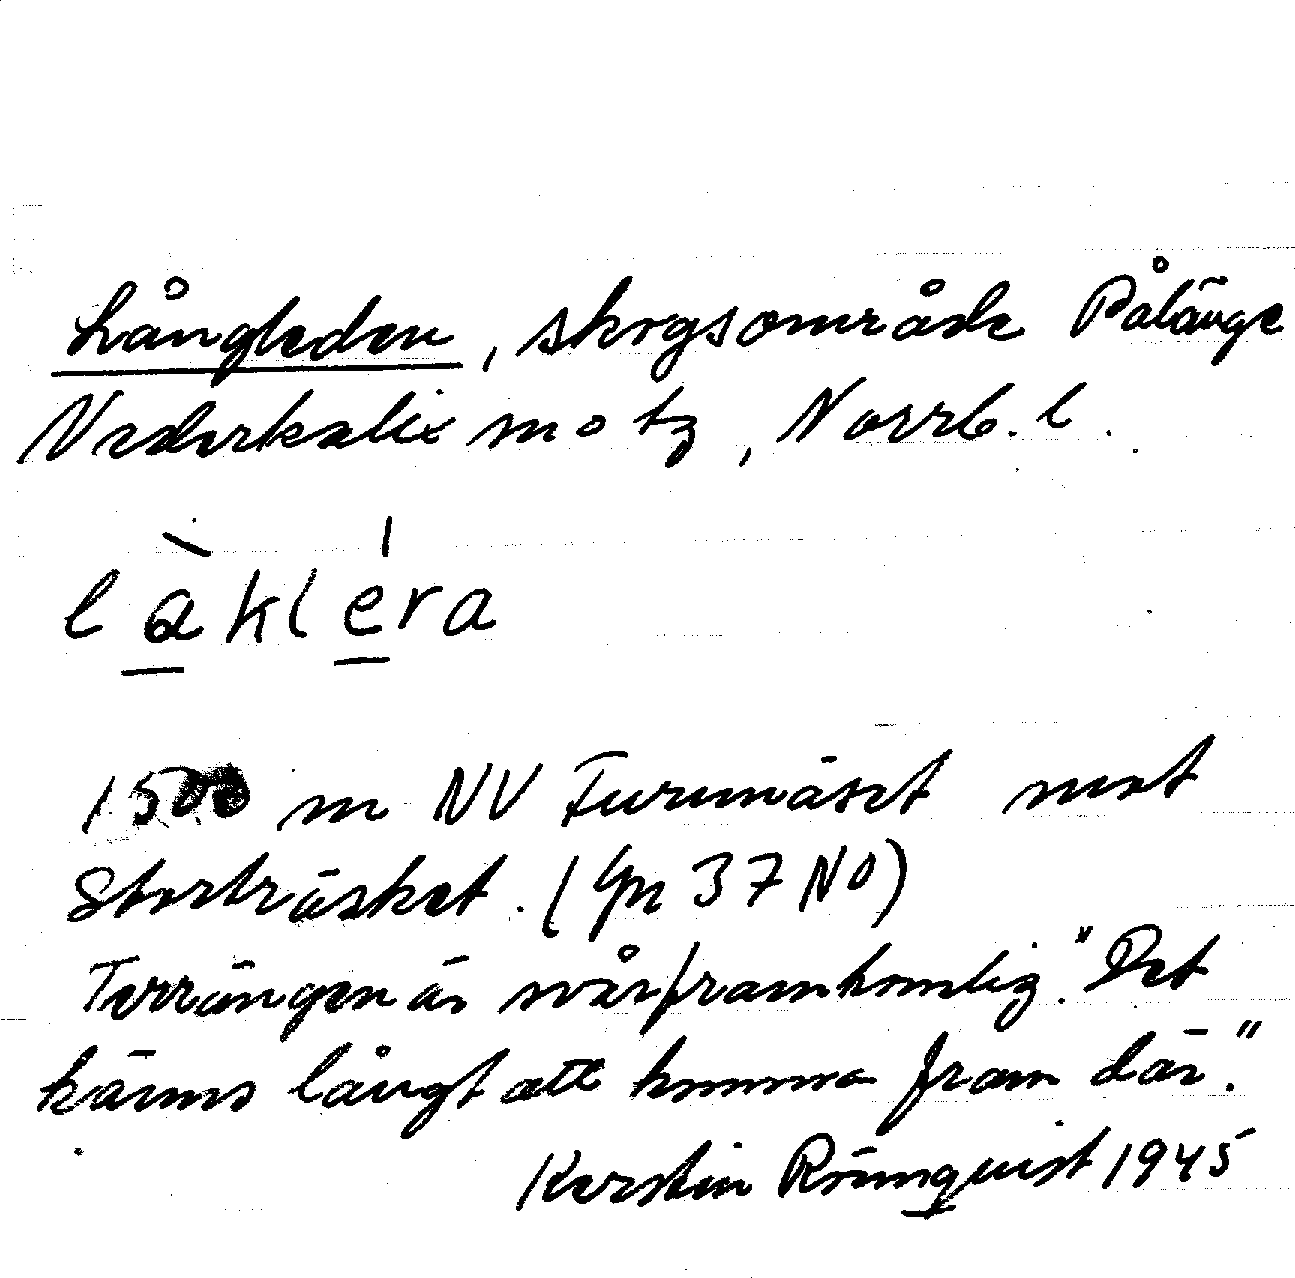 Långleden, skogsområde Pålänge
Nederkalix motz, Norrb. l.
làkléra
1500 m NV Furunäset mot
Storträsket. (Gpn 37 NO)
Terrängen är svårframkomlig. "Det
känns långt att komma fram där."
Kerstin Rönnquist 1945